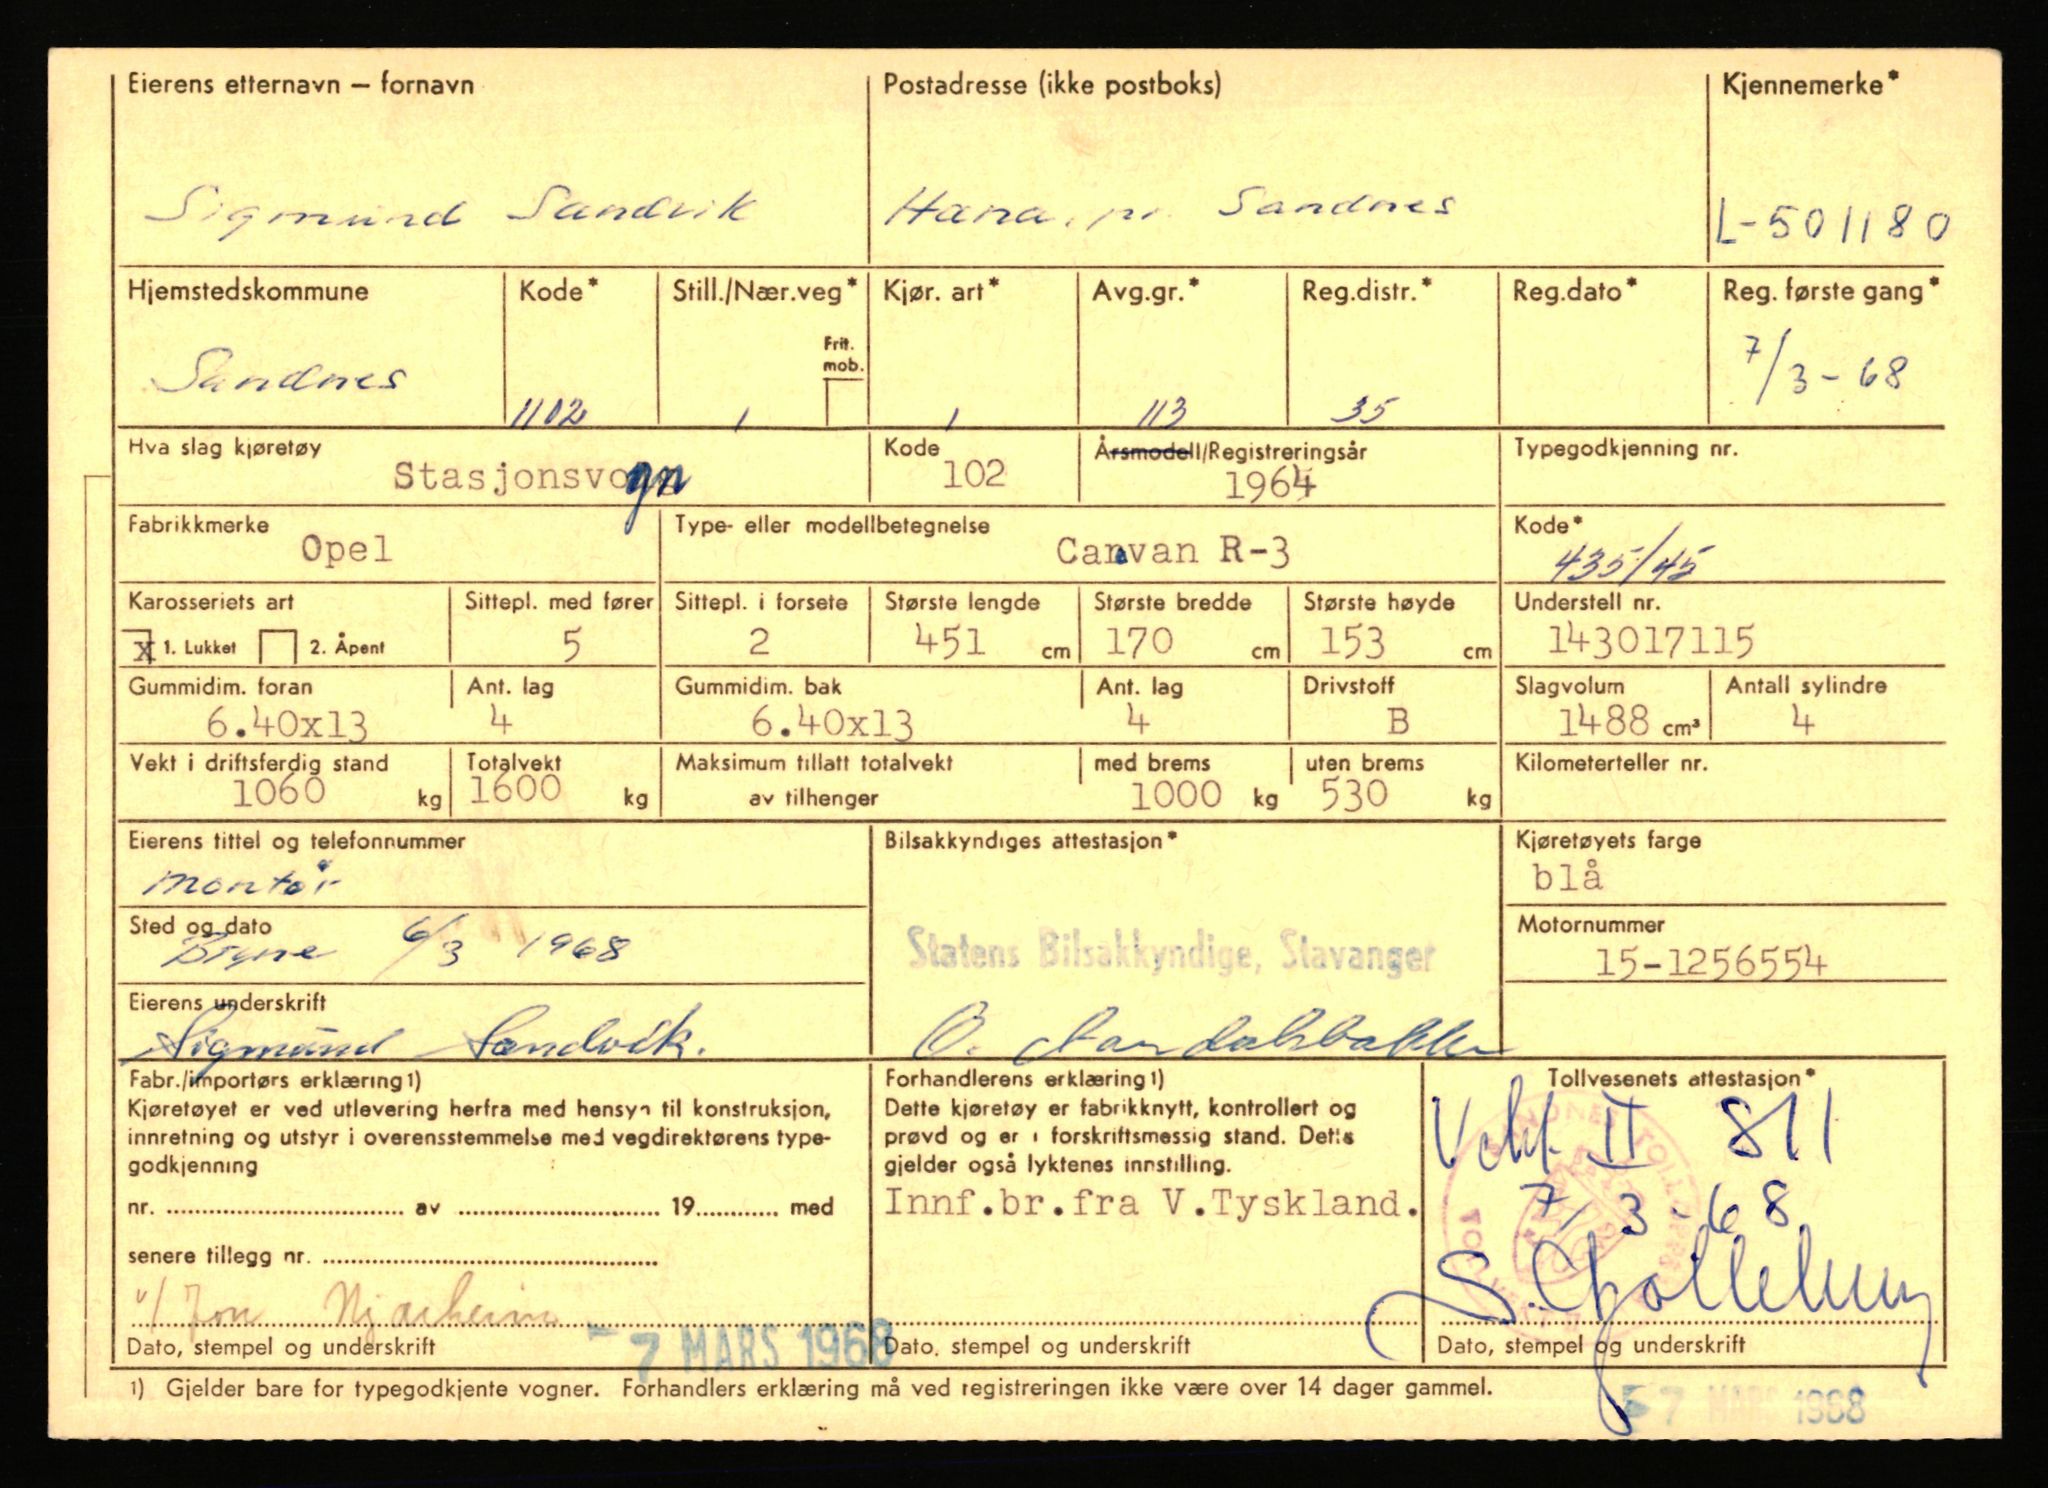 Eierens etternavn — fornavn
Postadresse (ikke postboks)
Kjennemerke*
Sigmund Sandvik
Hana, pr. Sandnes
L-501180
Hjemstedskommune
Kode*
Still./Nær.veg*
Kjør. art*
Avg.gr.*
Reg.distr.*
Reg.dato*
Reg. første gang*
Frit. mob.
Sandnes
1102
1
1
113
35
7/3-68
Hva slag kjøretøy
Kode
Årsmodell/Registreringsår
Typegodkjenning nr.
Stasjonsvogn
102
1964
Fabrikkmerke
Type- eller modellbetegnelse
Kode*
Opel
Caravan R-3
435/45
Karosseriets art
Sittepl. med fører
Sittepl. i forsete
Største lengde
Største bredde
Største høyde
Understell nr.
x 1. Lukket
2. Åpent
5
2
451 cm
170 cm
153 cm
143017115
Gummidim. foran
Ant. lag
Gummidim. bak
Ant. lag
Drivstoff
Slagvolum
Antall sylindre
6.40x13
4
6.40x13
4
B
1488 cm³
4
Vekt i driftsferdig stand
Totalvekt
Maksimum tillatt totalvekt
med brems
uten brems
Kilometerteller nr.
1060 kg
1600 kg
av tilhenger
1000 kg
530 kg
Eierens tittel og telefonnummer
Bilsakkyndiges attestasjon*
Kjøretøyets farge
montør
blå
Sted og dato
Motornummer
Bryne 6/3 1968
Statens Bilsakkyndige, Stavanger
15-1256554
Eierens underskrift
Sigmund Sandvik.
Fabr./importørs erklæring1)
Kjøretøyet er ved utlevering herfra med hensyn til konstruksjon,
innretning og utstyr i overensstemmelse med vegdirektørens type-
godkjenning
nr. .......... av .......... 19.......... med
senere tillegg nr. ..........
v/ Jon Njærheim
7 MARS 1968
Dato, stempel og underskrift
Forhandlerens erklæring1)
Dette kjøretøy er fabrikknytt, kontrollert og
prøvd og er i forskriftsmessig stand. Dette
gjelder også lyktenes innstilling.
Innf.br.fra V.Tyskland.
Dato, stempel og underskrift
Tollvesenets attestasjon*
II 811
7/3-68
Dato, stempel og underskrift
1) Gjelder bare for typegodkjente vogner. Forhandlers erklæring må ved registreringen ikke være over 14 dager gammel.
7 MARS 1968